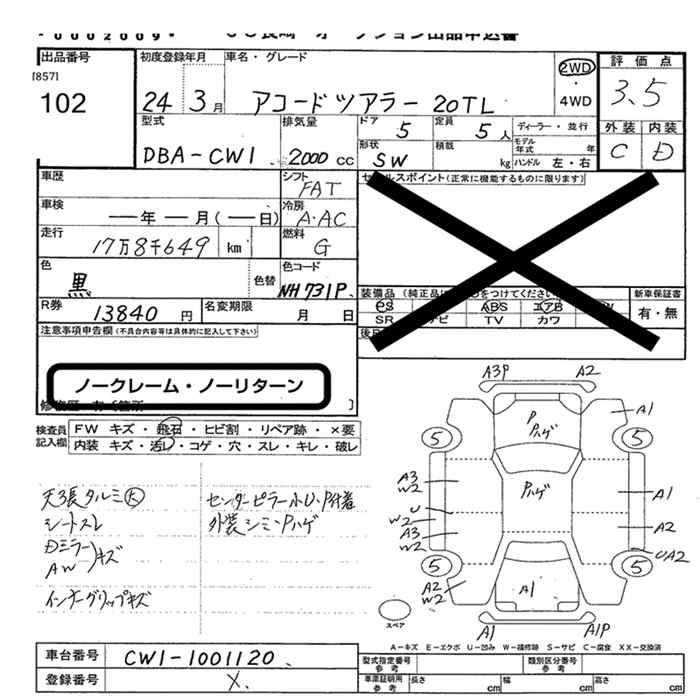 出品番号
[857]
102
初度登録年月
24年3月
車名・グレード
アコードツアラー 20TL
2WD
・
4WD
評価点
3.5
外装 内装
C D
型式
DBA-CW1
排気量
2000 CC
ドア
5
定員
5人
ディーラー・並行
形状
SW
積載
kg
モデル年式 年
ハンドル 左・右
車歴
シフト
FAT
車検
年 月( 日)
冷房
A・AC
走行
17万8千649 km
燃料
G
色
黒
色替
色コード
NH731P
R券
13840 円
名変期限
月 日
セールスポイント(正常に機能するものに限ります)
装備品
PS ABS エアB
SR ナビ TV カワ
新車保証書
有・無
注意事項申告欄(不具合内容等は具体的に記入して下さい)
ノークレーム・ノーリターン
検査員記入欄
FW キズ・飛石・ヒビ割・リペア跡・×要
内装 キズ・汚レ・コゲ・穴・スレ・キレ・破レ
天張タルミ大
シートスレ
Dミラー
AW
キズ
インナーグリップキズ
センターピラー小U・P付着
外装シミ・Pハゲ
A3P A2
A1
P
Pハゲ
5 5
A3
W2
Pハゲ
A1
U
W2
A3
W2
A2
UA2
5 5
A2
W2
A1
スペア
A1 A1P
A-キズ E-エクボ U-凹み W-補修跡 S-サビ C-腐食 XX-交換済
車台番号
CW1-1001120
登録番号
X.
型式指定番号
参考
類別区分番号
参考
車庫証明用
参考
長さ cm
幅 cm
高さ cm